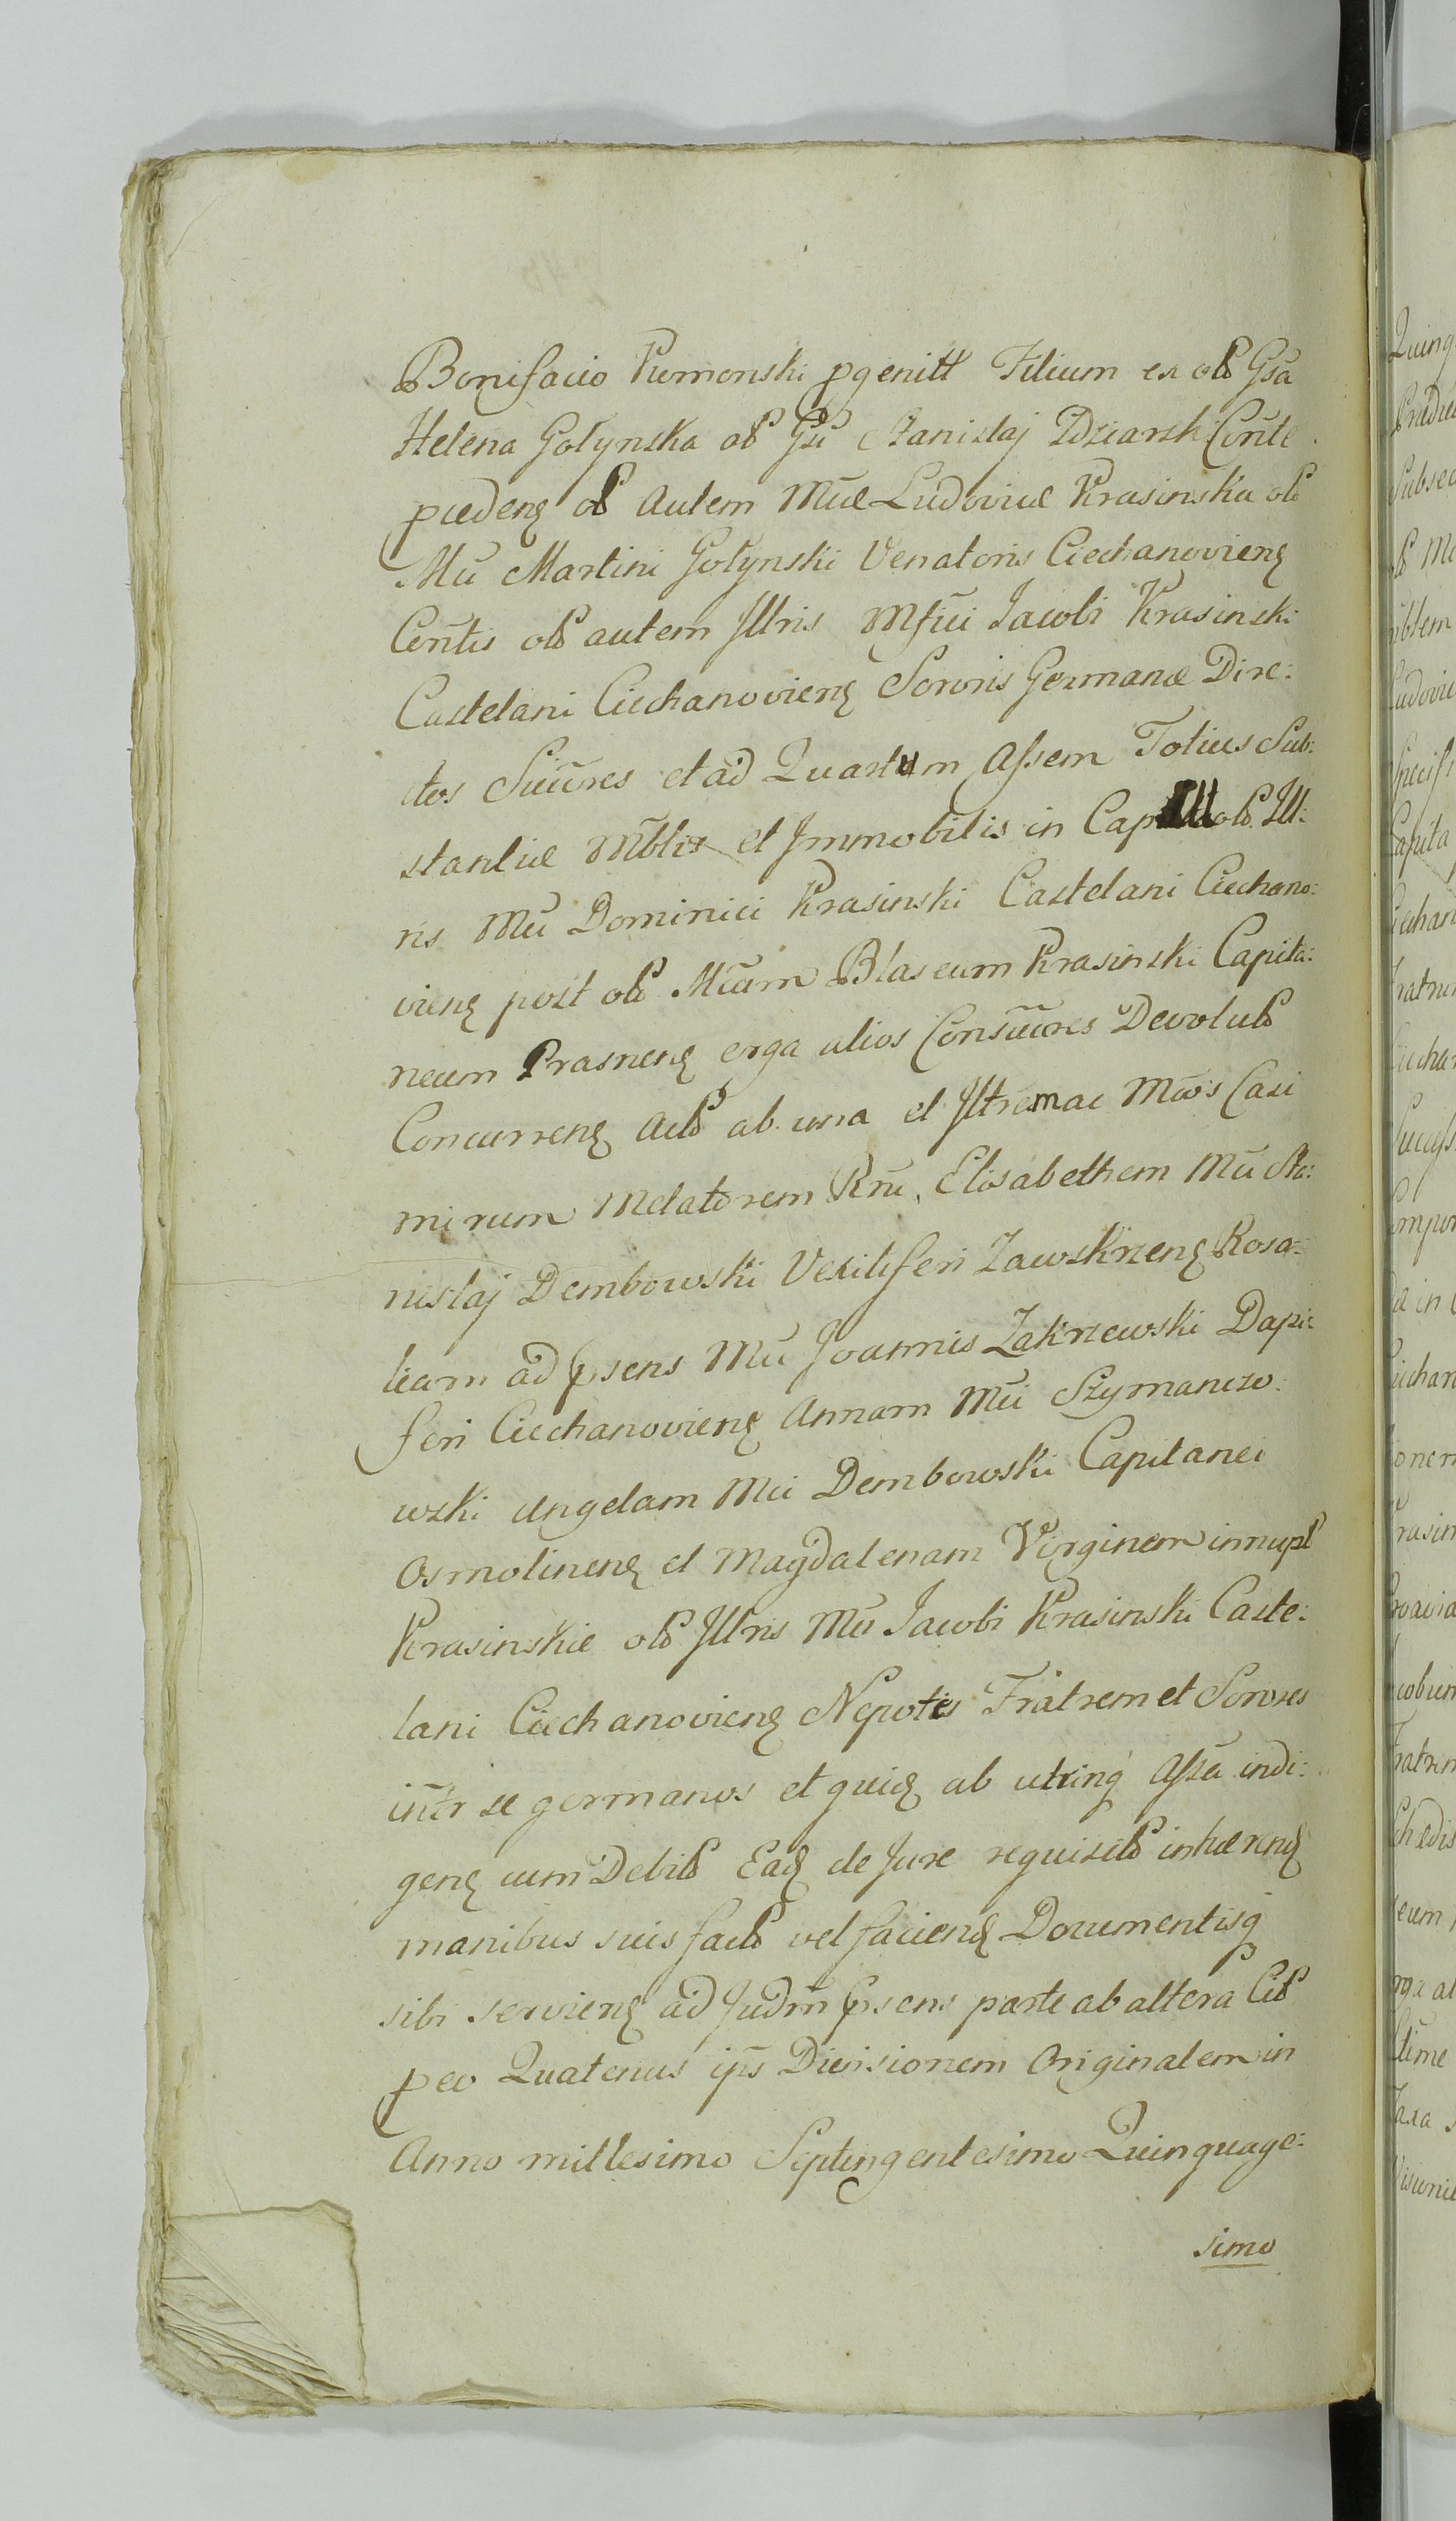 Bonifacio Kumonski pgenitt Filium ex olB Gsa
Helena Gołynska olB Gsi Stanislaj Zdziarski Conte
pcedenę olB autem Mcae Ludovicae Krasinska olB
Mci Martini Gołynski Venatoris Ciechanovienę
Centis olB autem Illris Mfici Jacobi Krasinski
Castelani Ciechanovienę Sororis Germanæ Dire:
ctos Succres et ad Quartum Assem Totius Sub:
stantiæ Mblis et Immobilis in Cap olB Ill:
ris Mci Dominici Krasinski Castelani Ciechano:
vienę post olB Mcum Blaseum Krasinski Capita:
neum Prasnenę erga alios Consuccres DevolutB
Concurrenę ActB ab una et Illremac Mcos Casi
mirum Metatorem Rni, Elisabethem Mci Sta:
nislaj Dembowski Vexiliferi Zawskrzenę Rosa:
liam ad psens Mci Joannis Zakrzewski Dapi:
feri Ciechanovienę Annam Mci Szymanczo:
wski Angelam Mci Dembowski Capitanei
Osmolinenę et Magdalenam Virginem innupt
Krasinskie olB Illris Mci Jacobi Krasinski Caste:
lani Ciechanovienę Nepotes Fratrem et Sorores
inter se germanos et quidę ab utrinq Assa indi:
genę cum DebitB Eadę de Jure requisitB inhærendę
manibus suis factB vel faciendę Documentisq
sibi servienę ad Judm psens parte ab altera CitB
peo Quatenus ips Divisionem Originalem in
Anno millesimo Septingentesimo Quinquage:
simo